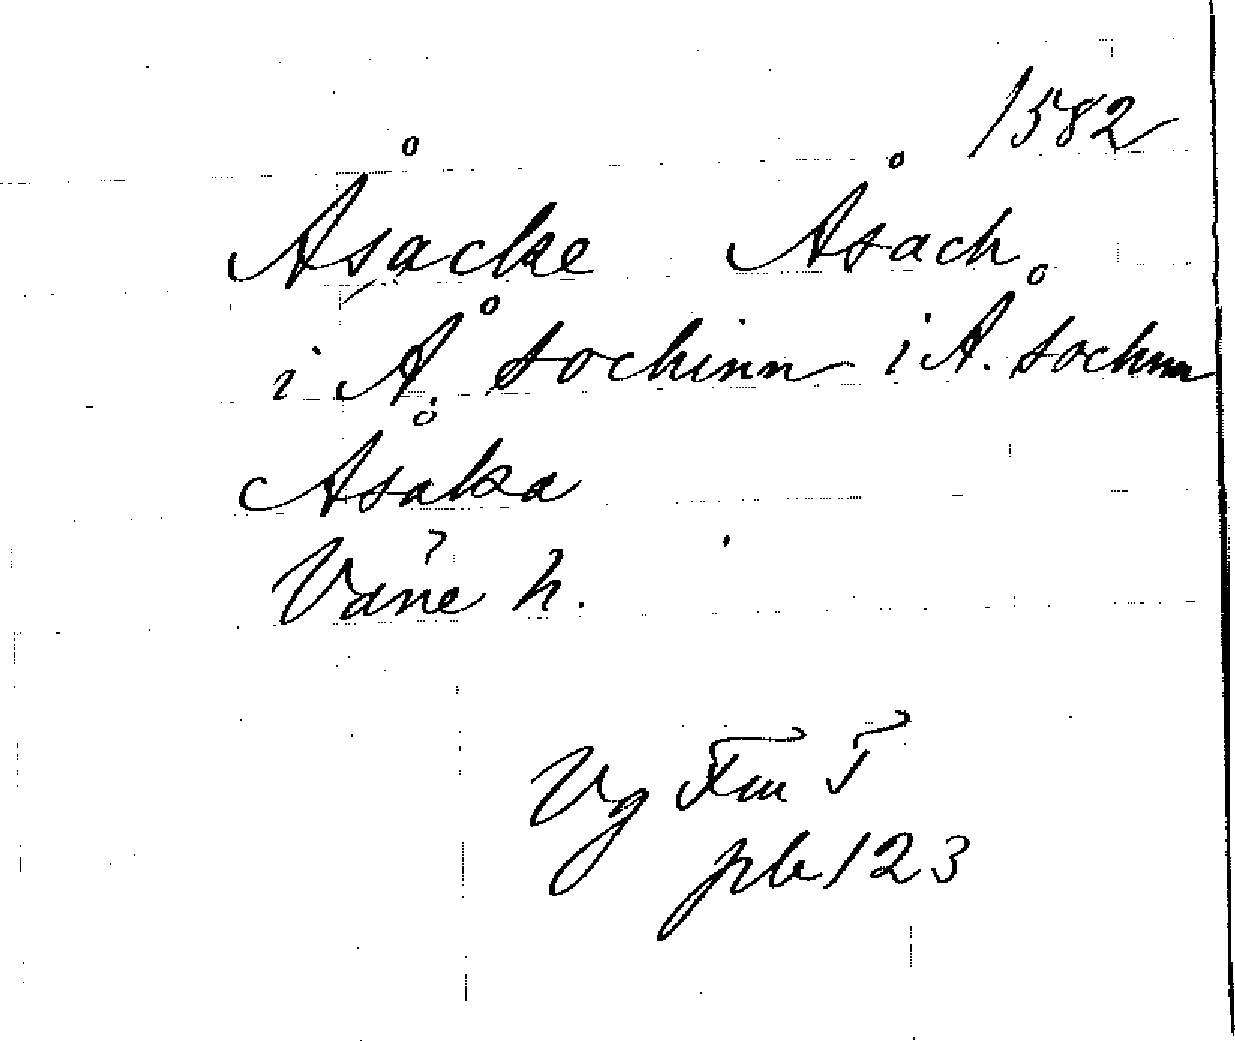 1582
Åsacke Åsach
i Å. sochinn i Å. sochnn
Åsaka
Väne h.
Vg
pb 123